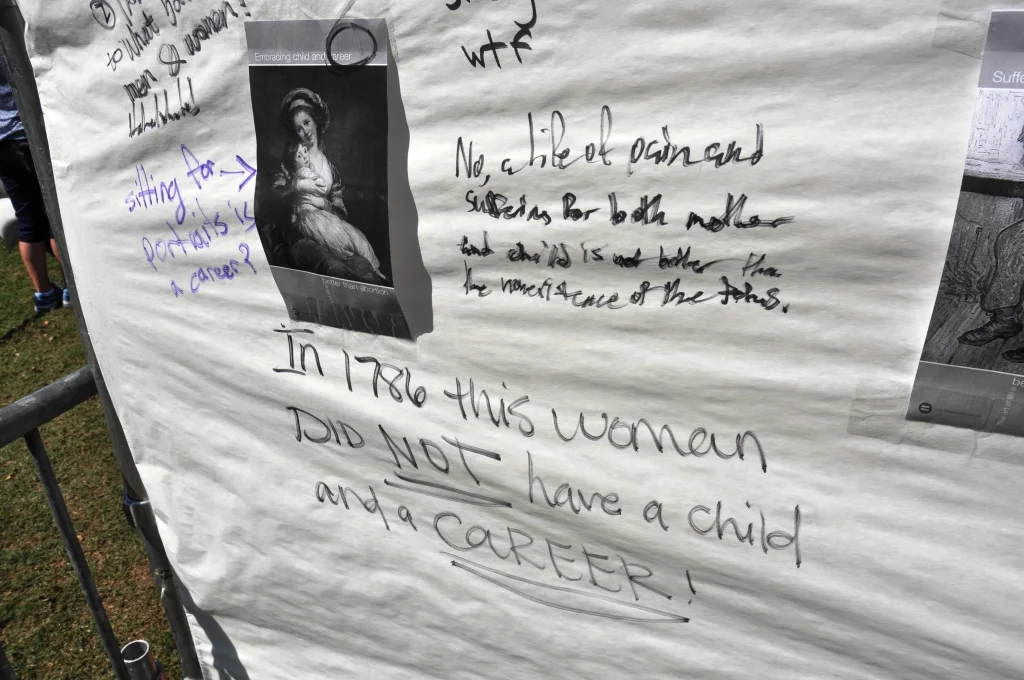 to what
men & women!
WTF
Embracing child and career
sitting for
portraits is
a career?
better than abortion
No, a life of pain and
suffering for both mother
and child is not better than
the nonexistence of the fetus.
In 1786 this woman
DID NOT have a child
and a CAREER!
Suffe
be